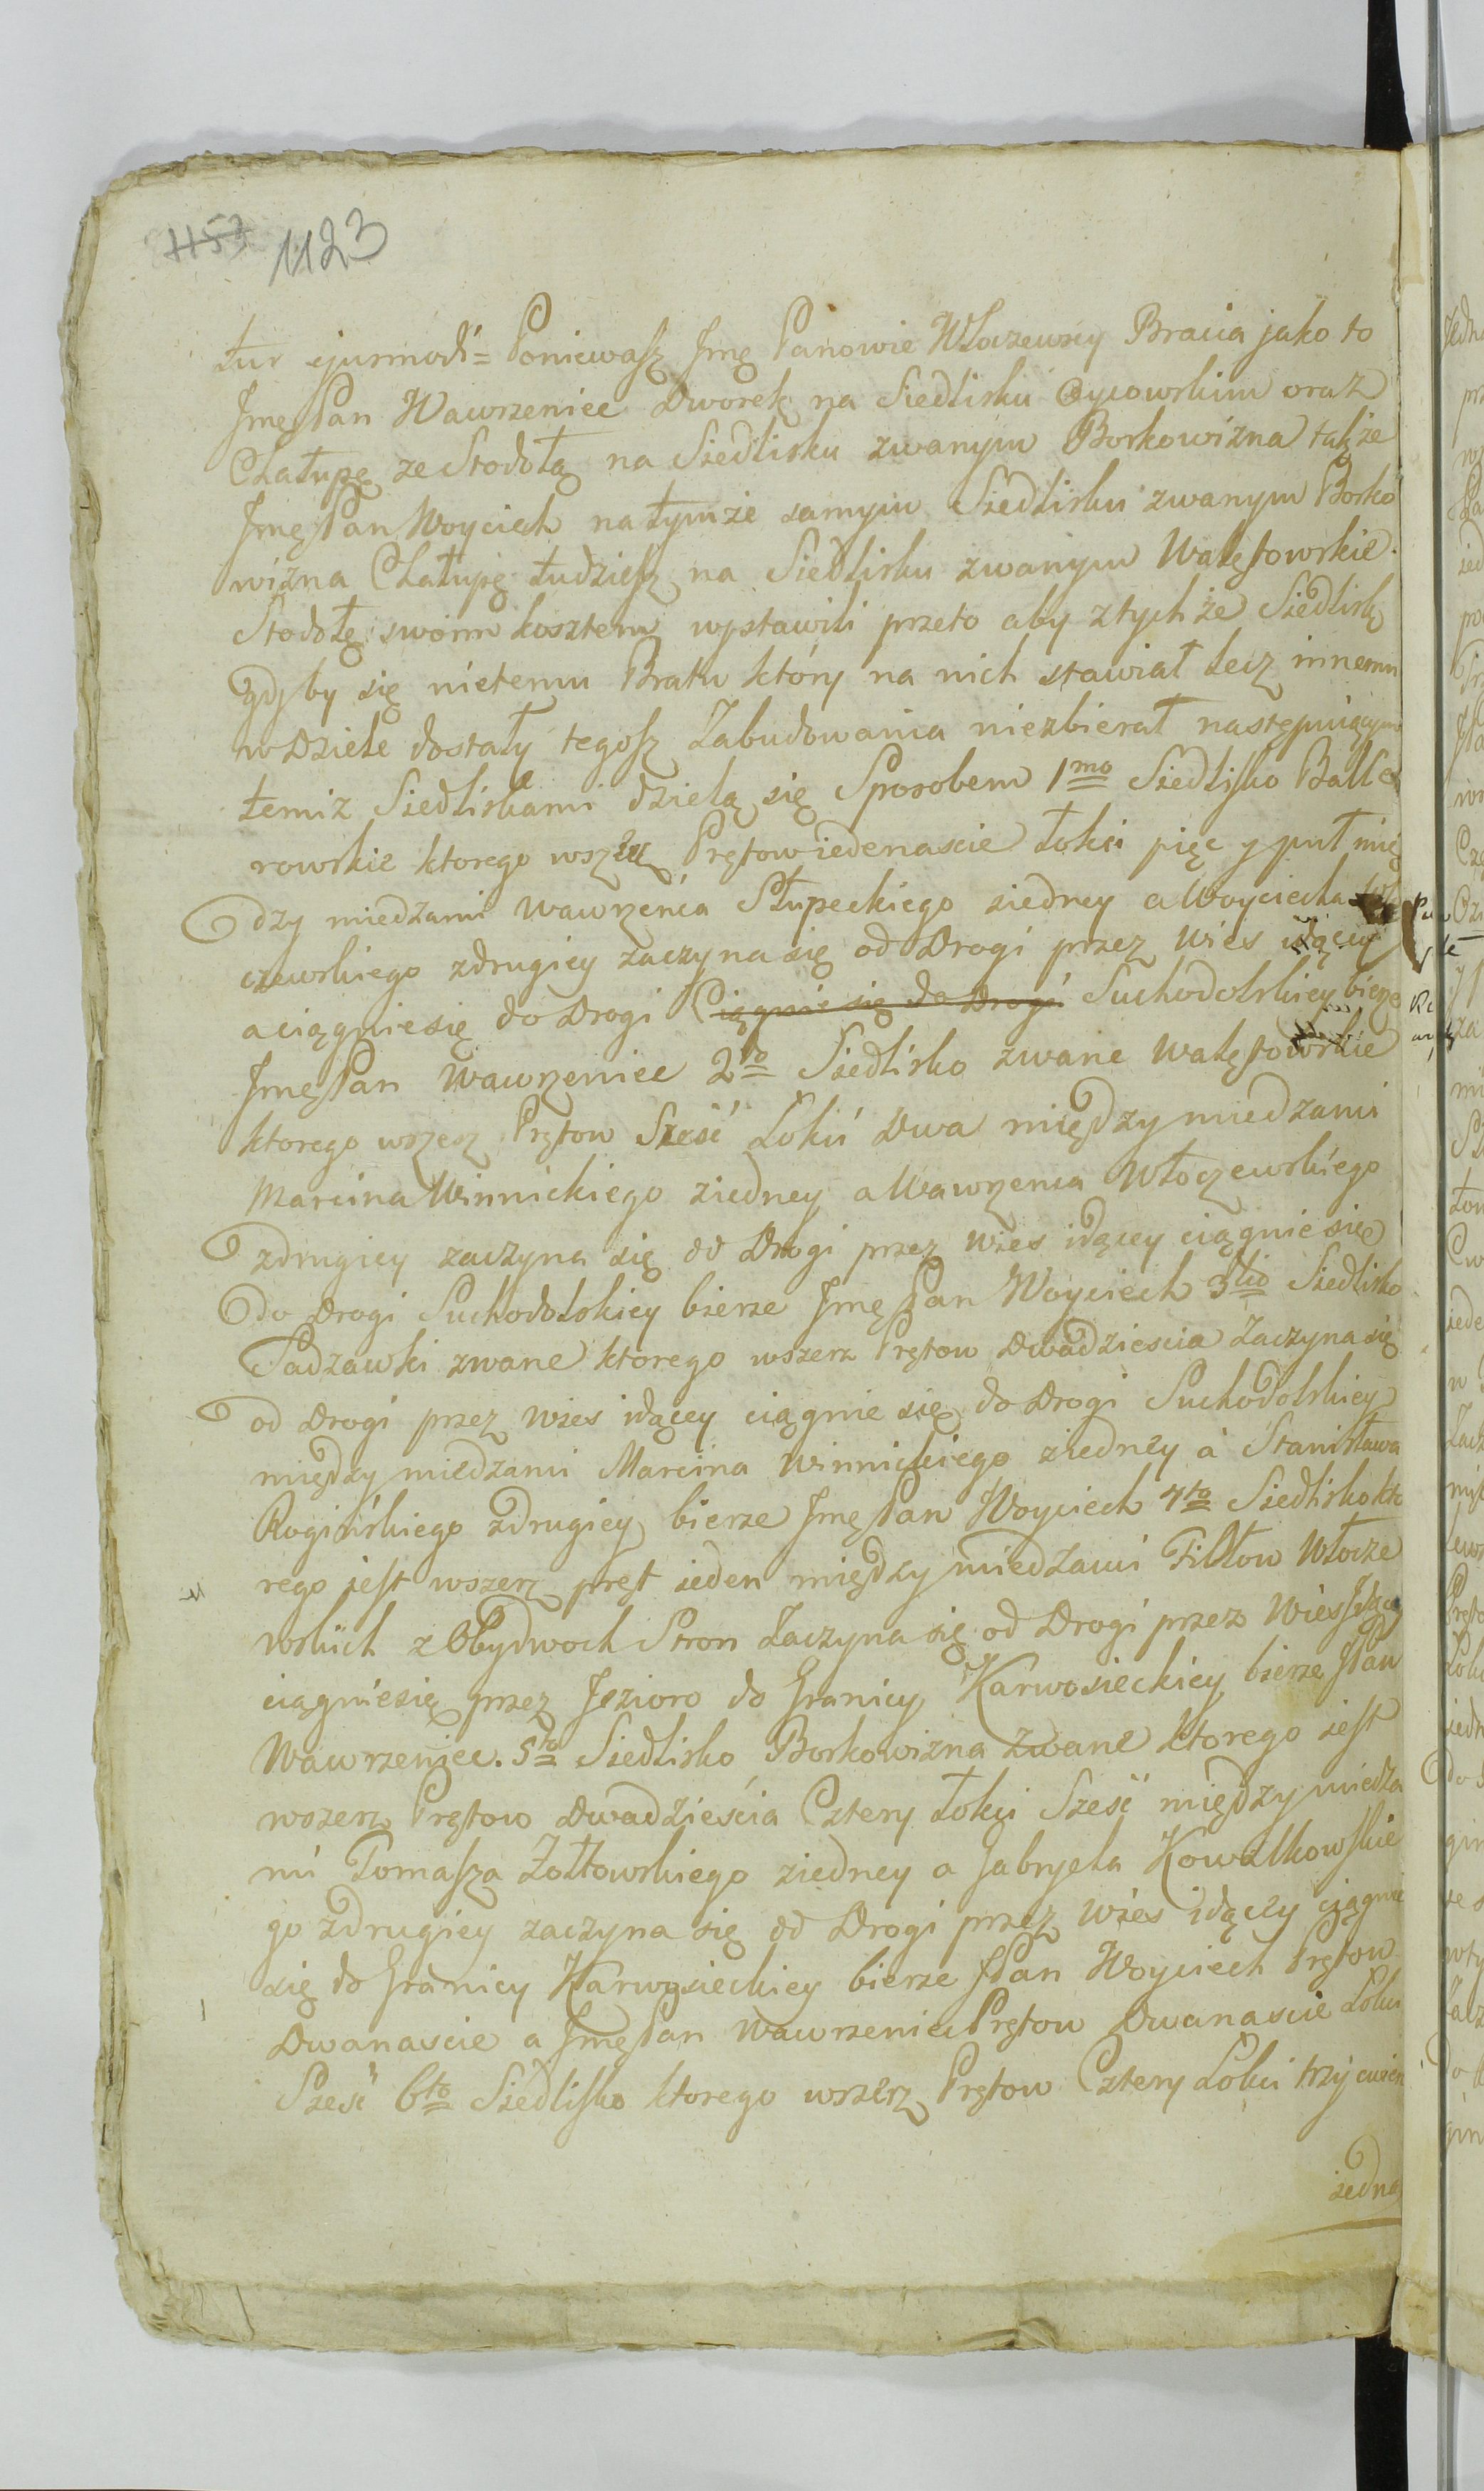 1153 1123
tur ejusmodi = Poniewasz Jmę Panowie Włoczewscy Bracia jako to
Jmę Pan Wawrzeniec Dworek na Siedlisku Oycowskim oraz
Chałupę ze Stodołą na Siedlisku zwanym Borkowizna także
Jmę Pan Woyciech na tymże samym Siedlisku zwanym Borko
wizna Chałupę tudziesz na Siedlisku zwanym Walęsowskie
Stodołę swoim kosztem wystawili przeto aby z tych że Siedlisk
gdyby się nietemu Bratu który na nich stawiał lecz innemu
w Dziele dostały tegosz Zabudowania niezbierał następuiącym
temiz Siedliskami dzielą się Sposobem 1mo Siedlisko Balce
rowskie ktorego wszerz Prętow iedenascie Łokci pięc y puł mię
dzy miedzami Wawrzenca Słupeckiego siedney a Woyciecha
czewskiego zdrugiey zaczyna się od Drogi przez Wies idącey
a ciągnie się do Drogi Ciągnie się do Drogi Suchodolskiey bierze
Jmę Pan Wawrzeniec 2do Siedlisko zwane Walęsowskie
ktorego wszesz Prętow Sześć Łokci Dwa między miedzami
Marcina Winnickiego ziedney a Wawrzenca Włoczewskiego
zdrugiey zaczyna się od Drogi przez Wies idącey ciągnie się
do Drogi Suchodolskiey bierze Jmę Pan Woyciech 3tio Siedlisko
Sadzawki zwane ktorego wszerz Prętow Dwadziescia Zaczyna się
od Drogi przez Wies idącey ciągnie się do Drogi Suchodolskiey
między miedzami Marcina Winnickiego ziedney a Stanisława
Rogińskiego zdrugiey bierze Jmę Pan Woyciech 4to Siedlisko kto
rego jest wszerz pręt ieden między miedzami Fillow Włocze
wskich z Obydwoch Stron Zaczyna się od Drogi przez Wies Jdącey
ciągnie się przez Jezioro do Granicy Karwosieckiey bierze JPan
Wawrzeniec. 5to Siedlisko Borkowizna zwane ktorego jest
wszerz Prętow Dwadzieścia Cztery Łokci Sześć między miedza
mi Tomasza Zołtowskiego ziedney a Gabryela Kowalkowskie
go zdrugiey zaczyna się od Drogi przez Wies idącey ciągnie
się do Granicy Karwosieckiey bierze JPan Woyciech Prętow
Dwanascie a Jmę Pan Wawrzeniec Prętow Dwanascie Łokci
Sześć 6to Siedlisko ktorego wszerz Prętow Cztery Łokci trzy cwierc
iedna